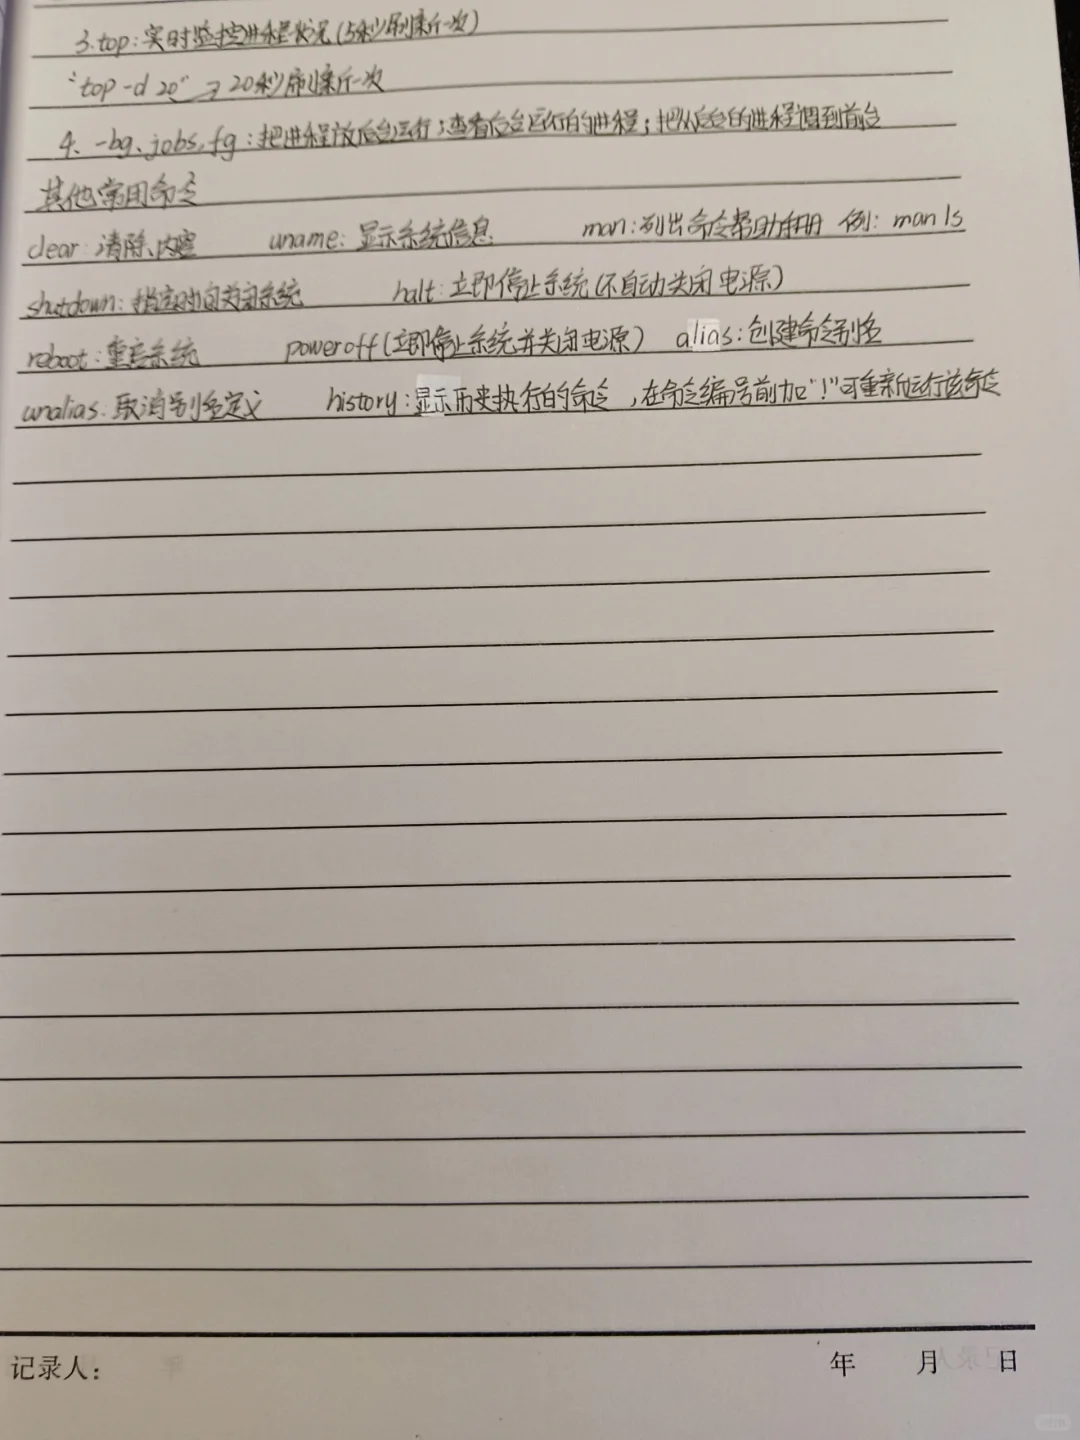 3.top:实时监控进程状况(5秒刷新一次)
"top -d 20" → 20秒刷新一次
4、-bg、jobs、fg:把进程放后台运行;查看后台运行的进程;把从后台的进程调到前台
其他常用命令
clear:清除内容 uname:显示系统信息 man:列出命令帮助手册 例:man ls
shutdown:指定时间关闭系统 halt:立即停止系统(不自动关闭电源)
reboot:重启系统 poweroff(立即停止系统并关闭电源) alias:创建命令别名
unalias:取消别名定义 history:显示历史执行的命令,在命令编号前加"!"可重新运行该命令
记录人: 年 月 日